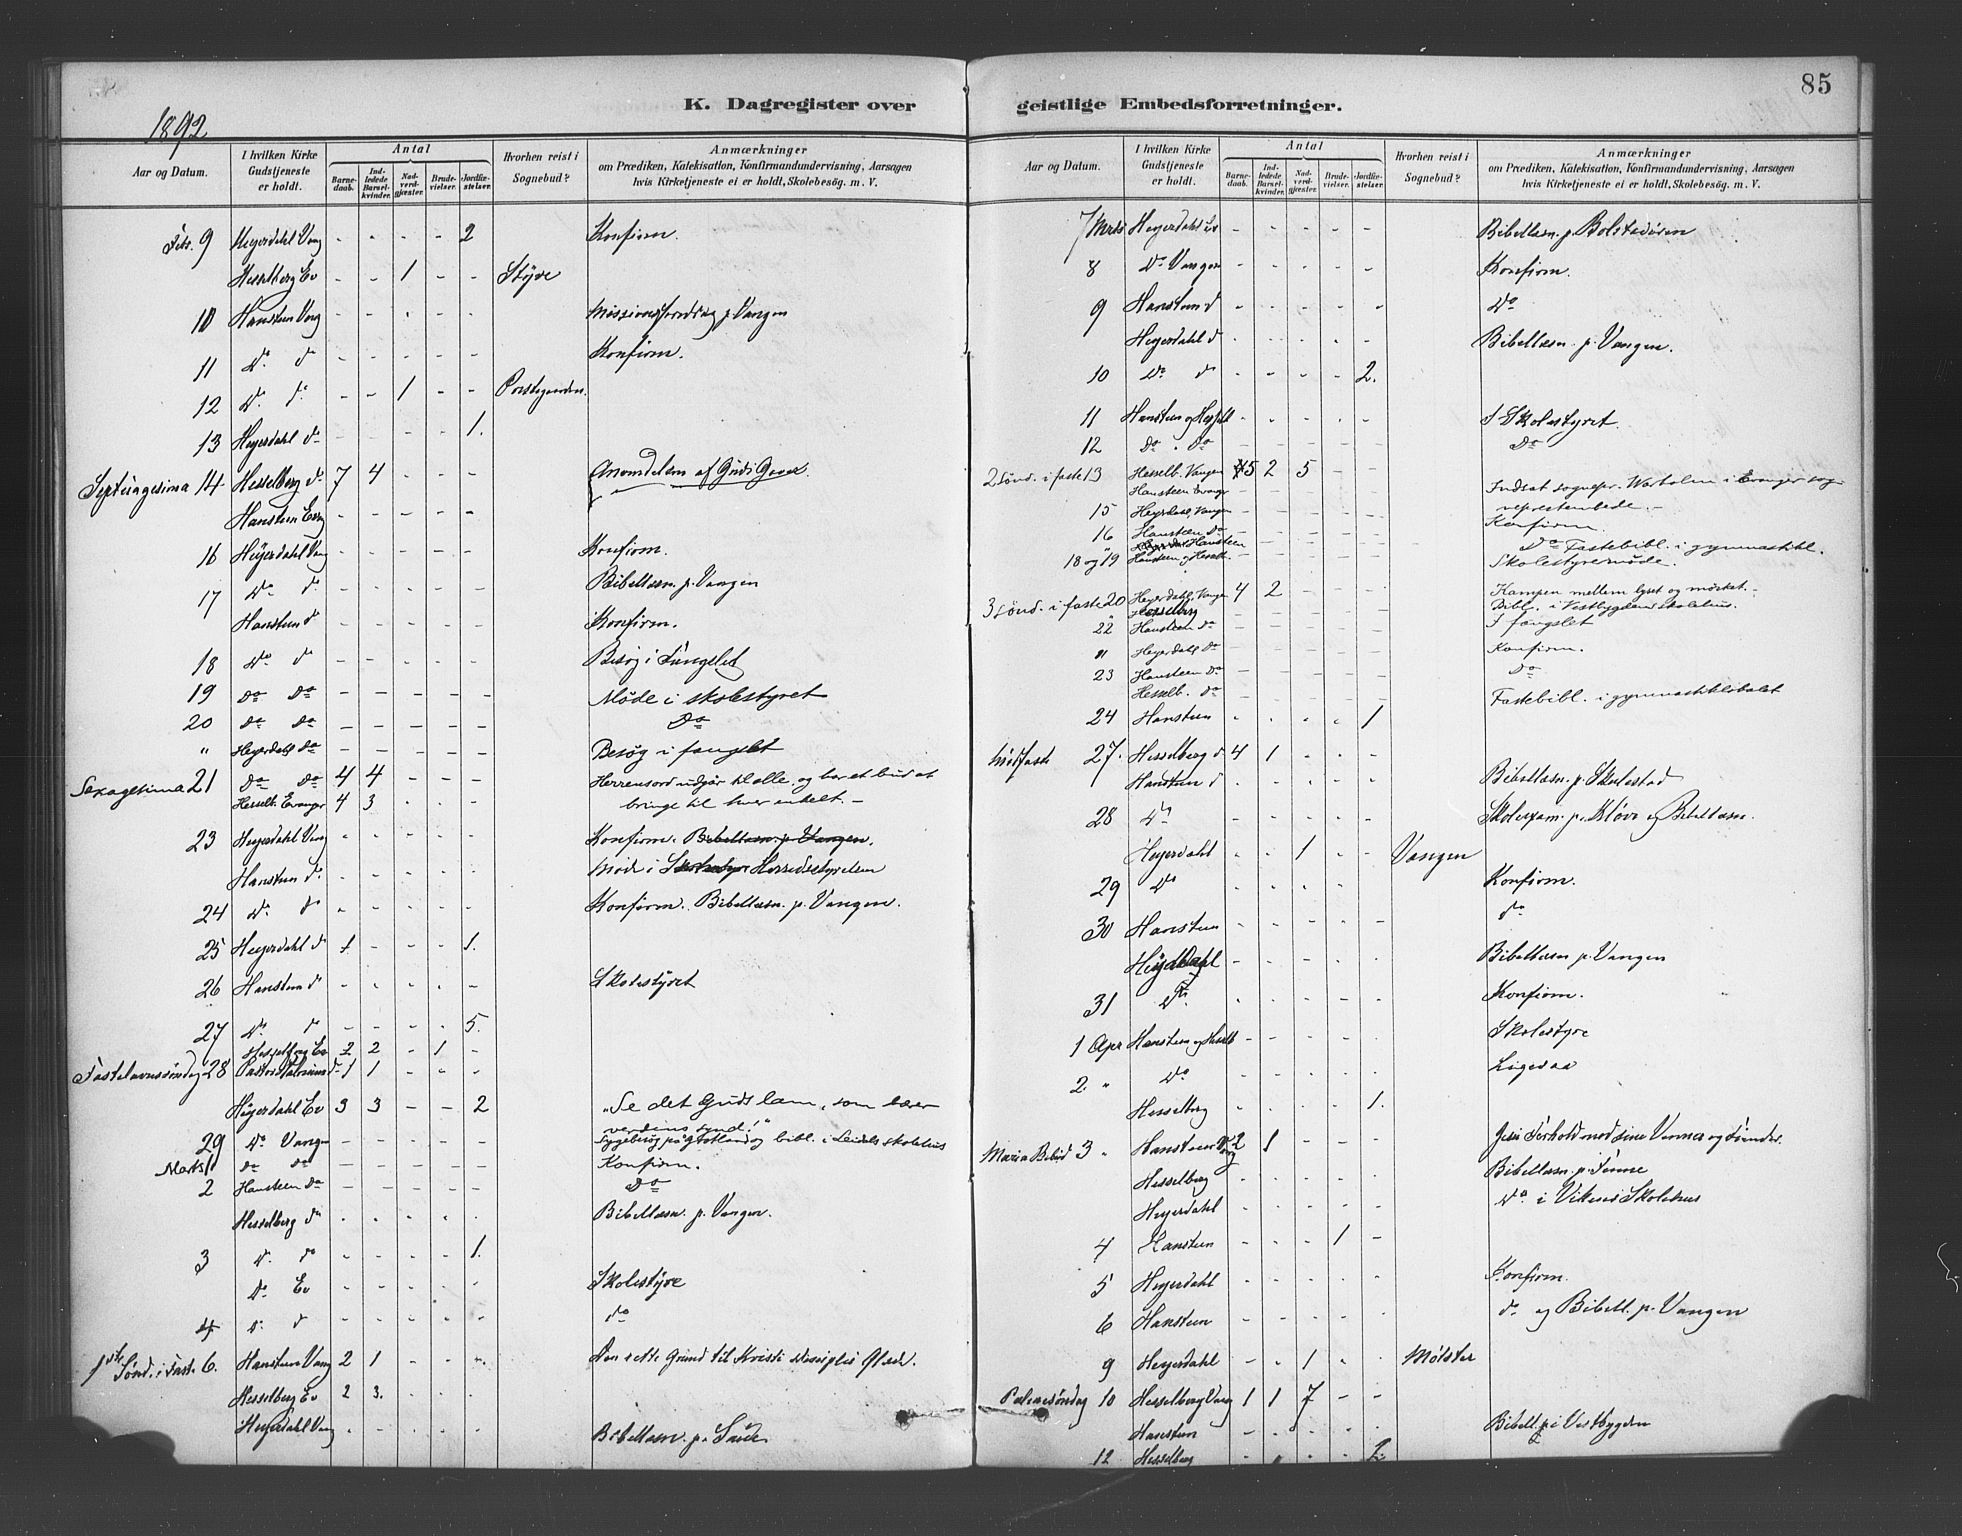 85
K. Dagregister over geistlige Embedsforretninger.
1892
Aar og Datum. I hvilken Kirke Gudstjeneste er holdt. Antal Barnedaab. Indledede Barselkvinder. Nadverdgjester. Brudevielser. Jordfæstelser. Hvorhen reist i Sognebud? Anmærkninger om Prædiken, Katekisation, Konfirmandundervisning, Aarsagen hvis Kirketjeneste ei er holdt, Skolebesøg. m. V.
Febr. 9 Heyerdahl Vang - - - - 2 Konfirm.
Hesselberg Ev - - 1 - - Styve
10 Hansteen Vang - - - - - Missionsforedrag p. Vangen
11 Do do - - - - - Konfirm.
12 Do do - - 1 - - Prestegaarden.
13 Heyerdahl do - - - - 1.
Septuagesima 14 Hesselberg do 7 4 - - - Anvendelsen af Guds Gaver
Hansteen Evang - - - - -
16 Heyerdahl Vang - - - - - Konfirm.
17 Do do - - - - - Bibellæsn. p. Vangen
Hansteen d - - - - - Konfirm.
18 Do d - - - - - Besøg i Fængslet
19 Do Do - - - - - Møde i skolestyret
20 Do Do - - - - - Do
" Heyerdahl Do - - - - - Besøg i fængslet
Sexagesima 21 Do Do 4 4 - - - Herrens ord udgår til alle, og har et bud at
Hesselb. Evanger 4 3 - - - bringe til hver enkelt. -
23 Heyerdahl Vang - - - - - Konfirm. Bibellæsn. p. Vangen.
Hansteen do - - - - - Møde i Herredsstyrelsen
24 Do do - - - - - Konfirm. Bibellæsn. p. Vangen.
25 Heyerdahl d 1 - - - 1.
26 Hansteen d - - - - - Skolestyret
27 Do d - - - - 5.
Hesselberg Ev 2 2 - 1 -
Fastelavnssøndag 28 Pastor do 1 1 - - -
Heyerdahl Ev 3 3 - - 2 "Se det Guds lam, som bær
verdens synd!"
29 Do Vangen - - - - - Sygebesøg på Grotland og bibl. i Leidals skolehus
Marts 1 Do Do - - - - - Konfirm.
2 Hansteen Do - - - - - Do
Hesselberg do - - - - - Bibellæsn. p. Vangen.
3 Do do - - - - 1.
Do Ev - - - - - Skolestyre
4 Do d - - - - - do
1ste Sønd. i Fast. 6. Hansteen Vang 2 1 - - - Den rette Grund til Kristi Disciples Glæde.
Hesselberg Ev 2 3. - - -
Heyerdahl Vang - - - - - Bibellæsn. p. Saude
Aar og Datum. I hvilken Kirke Gudstjeneste er holdt. Antal Barnedaab. Indledede Barselkvinder. Nadverdgjester. Brudevielser. Jordfæstelser. Hvorhen reist i Sognebud? Anmærkninger om Prædiken, Katekisation, Konfirmandundervisning, Aarsagen hvis Kirketjeneste ei er holdt, Skolebesøg. m. V.
7 Mrts Heyerdahl Ev - - - - - Bibellæsn. p. Bolstadøren
8 Do Vangen - - - - - Konfirm.
9 Hansteen d - - - - - Do
Heyerdahl d - - - - - Bibellæsn. p. Vangen.
10 Do do - - - - 2.
11 Hansteen og Hesselb - - - - - I Skolestyret.
12 Do . Do - - - - - Do
2 Sønd. i faste 13 Hesselb. Vangen 5 2 5 - -
Hansteen Evanger - - - - - Indsat sognepr. Wartolen i Evanger sogne-
15 Heyerdahl, Vangen - - - - - Konfirm.
16 Hansteen Do - - - - - Do
" Hansteen - - - - - Fastebibl. i gymnastikl.
18 og 19 Hansteen og Hesselb. - - - - - Skolestyremøde.
3 sønd. i faste 20 Heyerdahl, Vangen 4 2 - - - Kampen mellem lyset og mørket. -
" Hesselberg - - - - - Bibl. i Vestbygdens skolehus.
22 Hansteen Do - - - - - I fængslet
" Heyerdahl Do - - - - - Konfirm.
23 Hansteen Do - - - - - Do
Hesselb. Do - - - - - Fastebibl. i gymnastiklokalet
24 Hansteen - - - - 1
Midfaste 27. Hesselberg d 4 1 - - -
Hansteen d - - - - - Bibellæsn. p. Skolestad
28 Do - - - - - Skolexam. p. Kløve og Bibellæsn.
Heyerdahl - - 1 - - Vangen
29 Do - - - - - Konfirm.
30 Hansteen - - - - - do
Heyerdahl - - - - - Bibellæsn p. Vangen
31 Do - - - - - Konfirm.
1 Apr Hansteen og Hesselb - - - - - Skolestyre
2 " Do - - - - - Ligesaa
Hesselberg - - - - 1.
Maria Bebud 3 " Hansteen Vang 2 1 - - - Jesu Forhold mod sine Venner og Fiender.
Hesselberg - - - - - Bibellæsn. p. Finne
Heyerdahl - - - - - Do i Vikens Skolehus
4 Hansteen - - - 1 -
5 Heyerdahl - - - - - Konfirm.
6 Hansteen - - - - - do og Bibell. p. Vangen
9 Heyerdahl - - 1 - - Mølster
Palmesøndag 10 Hesselberg Vang 1 1 7 - -
Hansteen - - - - - Bibell. p. Vestbygden
12 Hesselberg - - - - 2.